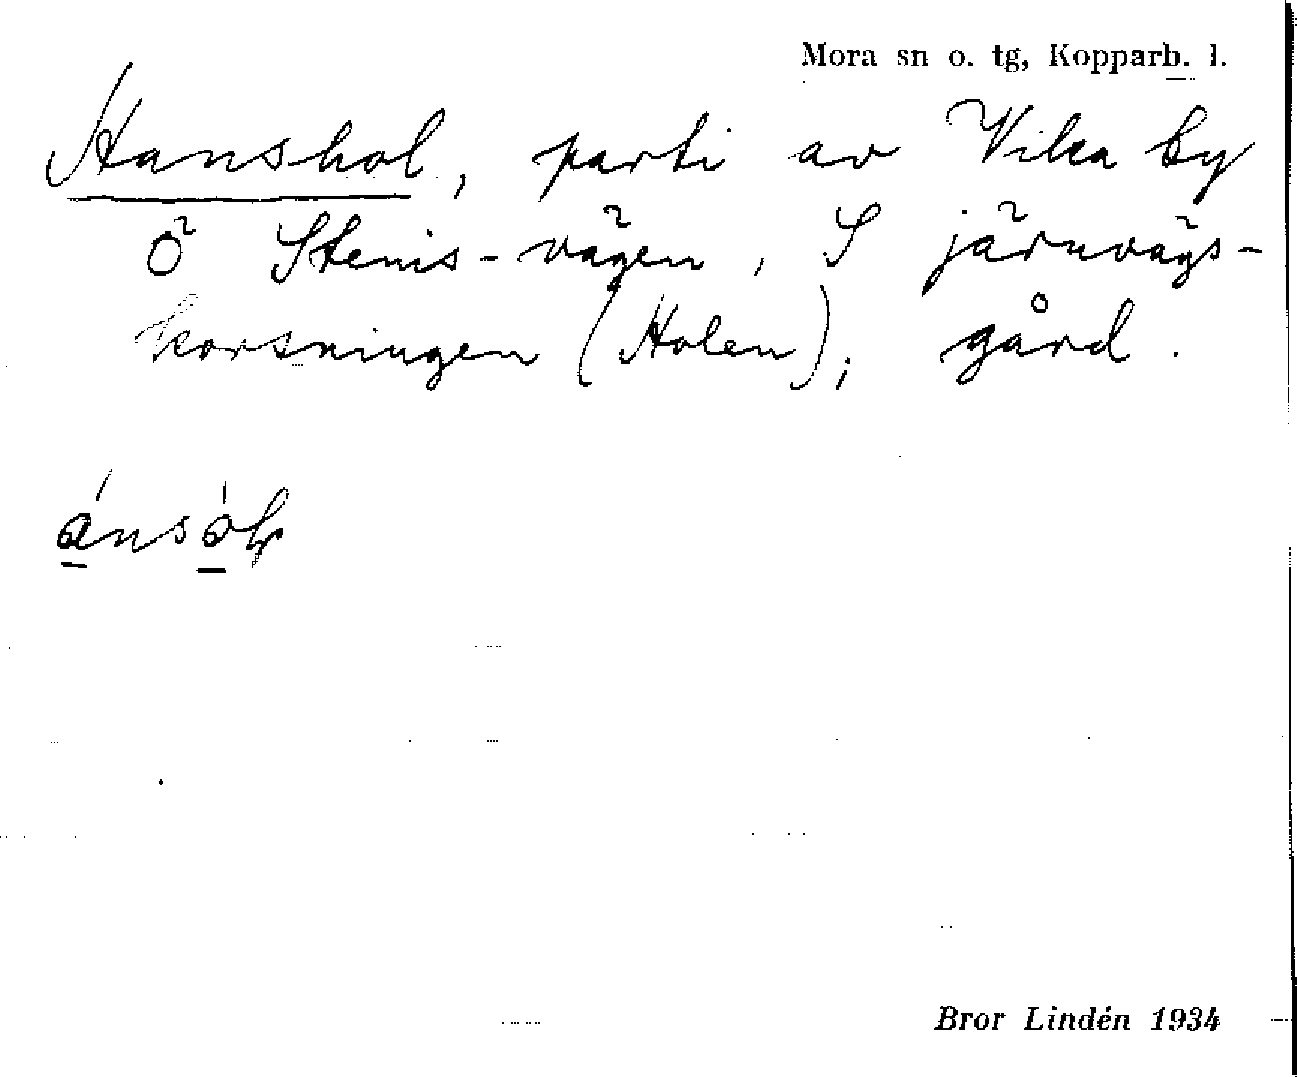 Mora sn o. tg, Kopparb. l.
Hanshol, parti av Vika by
Ö Stenis-vägen, S järnvägs-
korsningen (Holen); gård.
Bror Lindén 1934